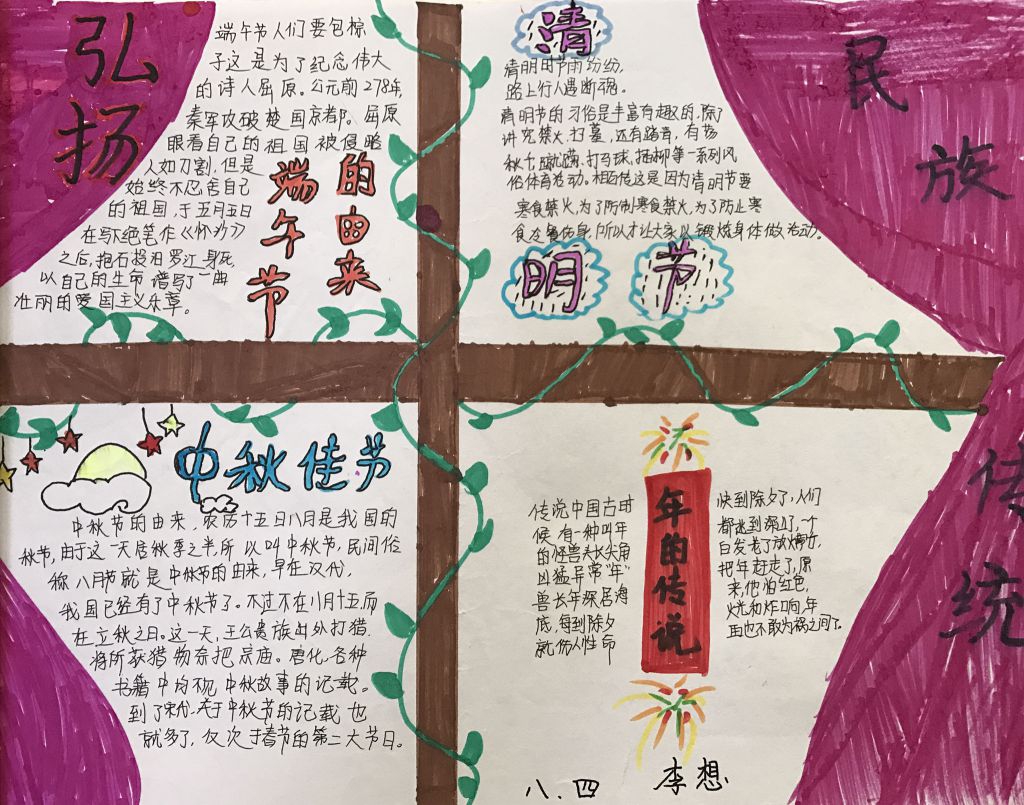 弘扬
民族
传统
端午节人们要包粽
子这是为了纪念伟大
的诗人屈原。公元前278年,
秦军攻破楚国京都。屈原
眼看自己的祖国被侵略
人如刀割,但是
始终不忍舍自己
的祖国,于五月五日
在写下绝笔作《怀沙》
之后,抱石投汨罗江身死
以自己的生命谱写了一曲
壮丽的爱国主义乐章。
端午节
的由来
清
清明时节雨纷纷,
路上行人遇断魂。
清明节的习俗是丰富有趣的,除了
讲究禁火扫墓,还有踏青,有荡
秋千,蹴鞠,打马球,插柳等一系列风
俗体育活动。相传这是因为清明节要
寒食禁火,为了防制寒食禁火,为了防止寒
所以才让大家以锻炼身体做活动。
明节
中秋佳节
中秋节的由来,农历十五日八月是我国的
秋节,由于这一天居秋季之半,所以叫中秋节,民间俗
称八月节就是中秋节的由来,早在汉代,
我国已经有了中秋节了。不过不在八月十五而
在立秋之日。这一天,王公贵族出外打猎
将所获猎物奈把宗庙。唐化,各种
书籍中均不见中秋故事的记载。
到了宋代,关于中秋节的记载也
就多了,仅次于春节的第二大节日。
年的传说
传说中国古时
候,有一种叫年
的怪兽头长尖角
凶猛异常"年"
兽长年深居海
底,每到除夕
就伤人性命
快到除夕了,人们
都逃到深山了,一个
白发老了放炸
把年赶走了,原
来,他怕红色,
火光和炸响,年
再也不敢为祸之间了。
八.四
李想